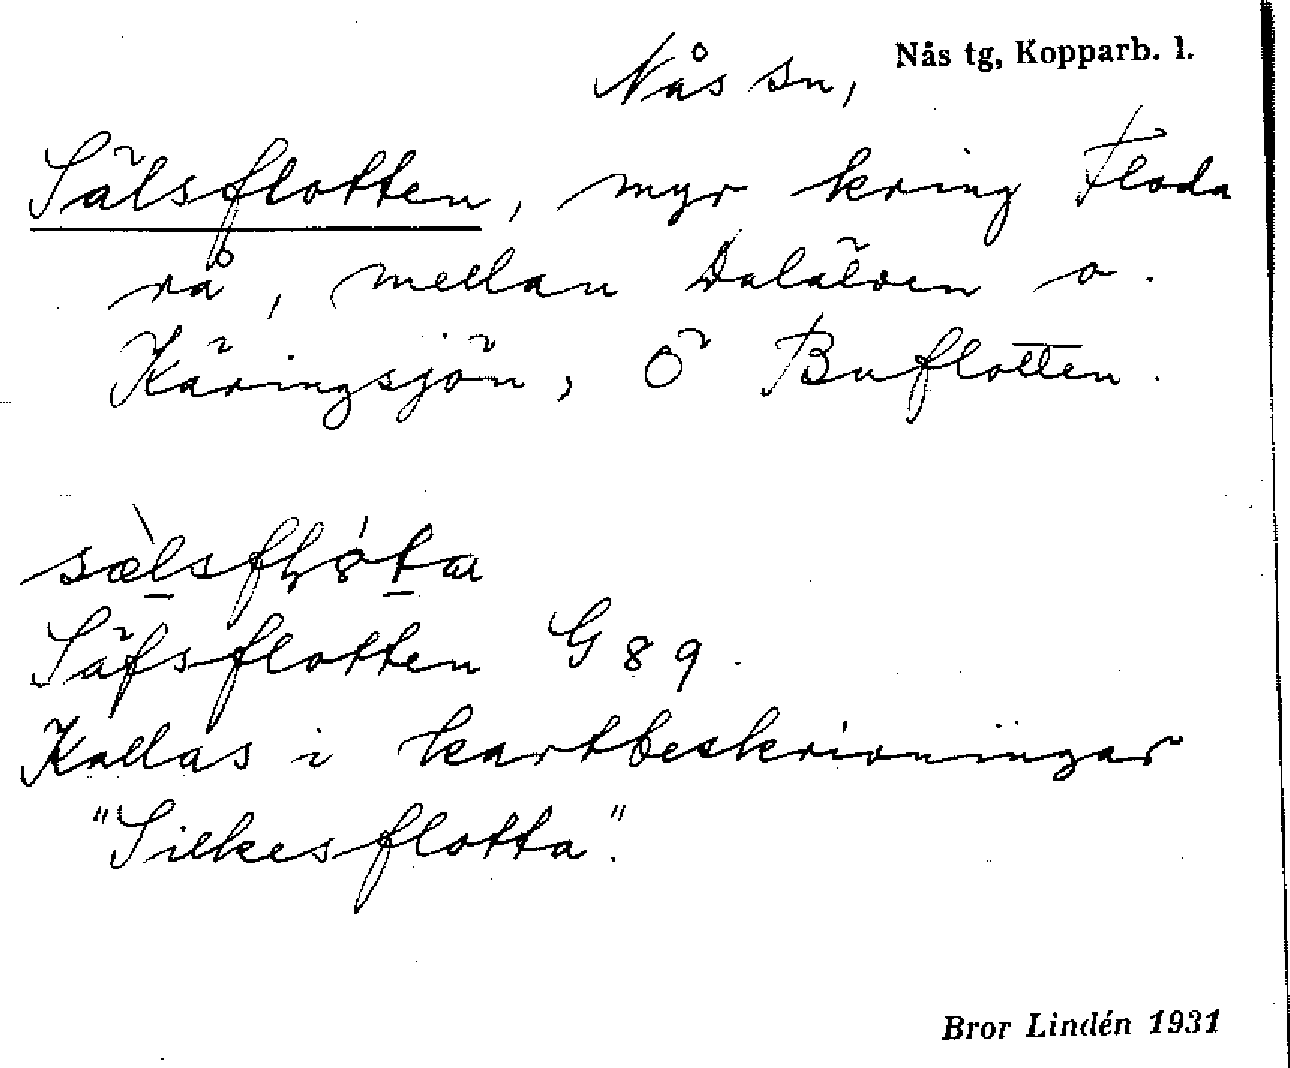 Nås sn, Nås tg, Kopparb. l.
Sälsflotten, myr kring Floda
rå, mellan Dalälven o.
Käringsjön, Ö Buflotten.
Säfsflotten G 89.
Kallas i kartbeskrivningar
"Silkesflotta".
Bror Lindén 1931